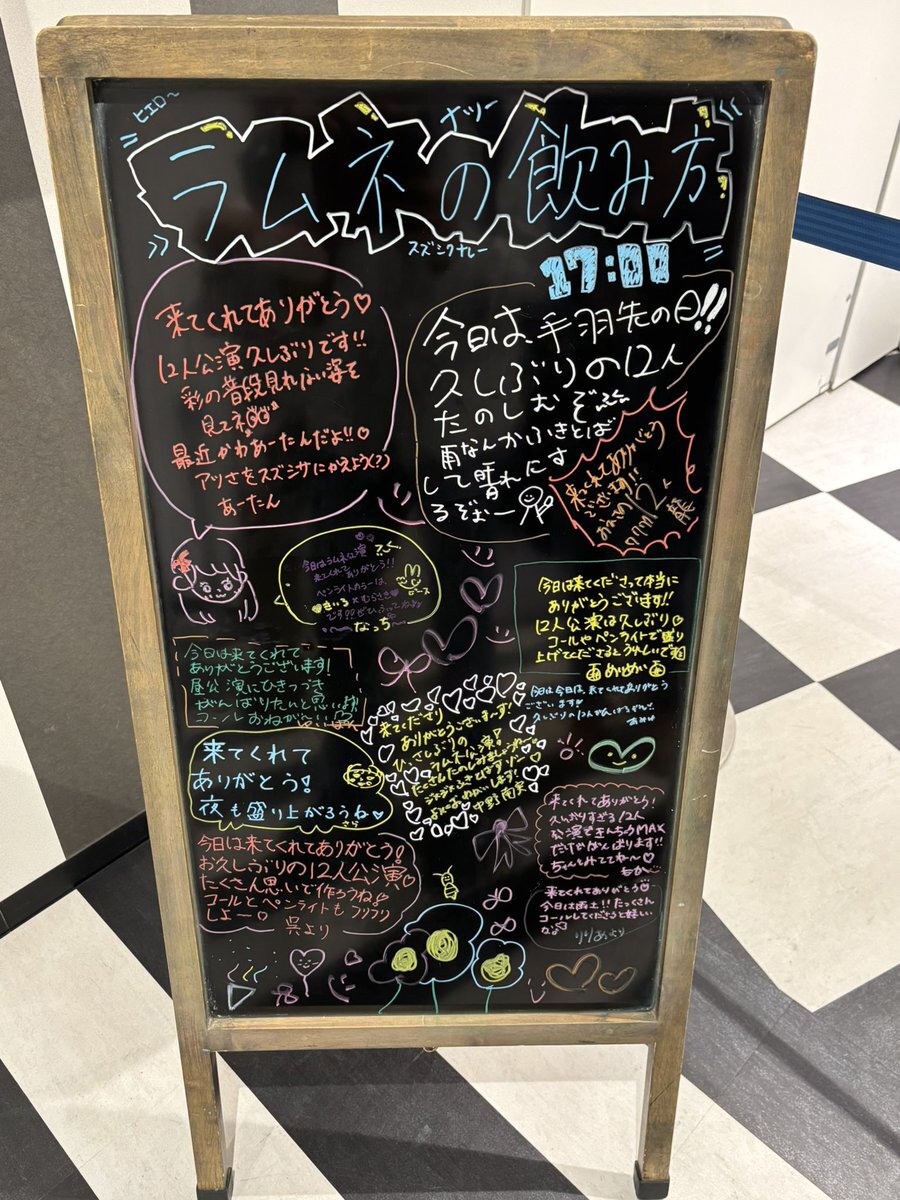 ヒエロ〜
ナツー
ラムネの飲み方
スズシクナレー
17:00
来てくれてありがとう♡
12人公演久しぶりです!!
彩の普段見れない姿を
見てネ
最近かわあーたんだよ!!♡
アツさをスズシサにかえよう(?)
あーたん
今日は、手羽先の日!!
久しぶりの12人
たのしむぞ
雨なんかふきとば
して晴れにす
るぞぉー
来てくれてありがとう
ございます!!
今日はラムネ公演
来てくれてありがとう!!
ペンライトカラーは、
きいろ×むらさき
です!!ぜひふってね
なっち
ローズ
今日は来てくださって本当に
ありがとうございます!!
12人公演は久しぶり
コールやペンライトで盛り
上げてくださるとうれしいです
めいゆい
今日は来てくれて
ありがとうございます!
昼公演にひきつづき
がんばりたいと思います
コールおねがい
今日は今日は、来てくれてありがとう
ございます
久しぶりの12人
来てくださり
ありがとうございまーす!
ひさしぶりの
ラムネ公演!
たくさんたのしみましょ
よろしくおねがいします!
来てくれて
ありがとう!
夜も盛り上がろうね
さら
来てくれてありがとう!
久しぶりすぎる12人
公演できんちょうMAX
だけどがんばります!!
ちゃんとみててね〜♡
今日は来てくれてありがとう!
お久しぶりの12人公演
たくさん思いで作ろうね!
コールとペンライトもフリフリ
しよー
呉より
来てくれてありがとう♡
今日は
コールしてくださると嬉しい
な